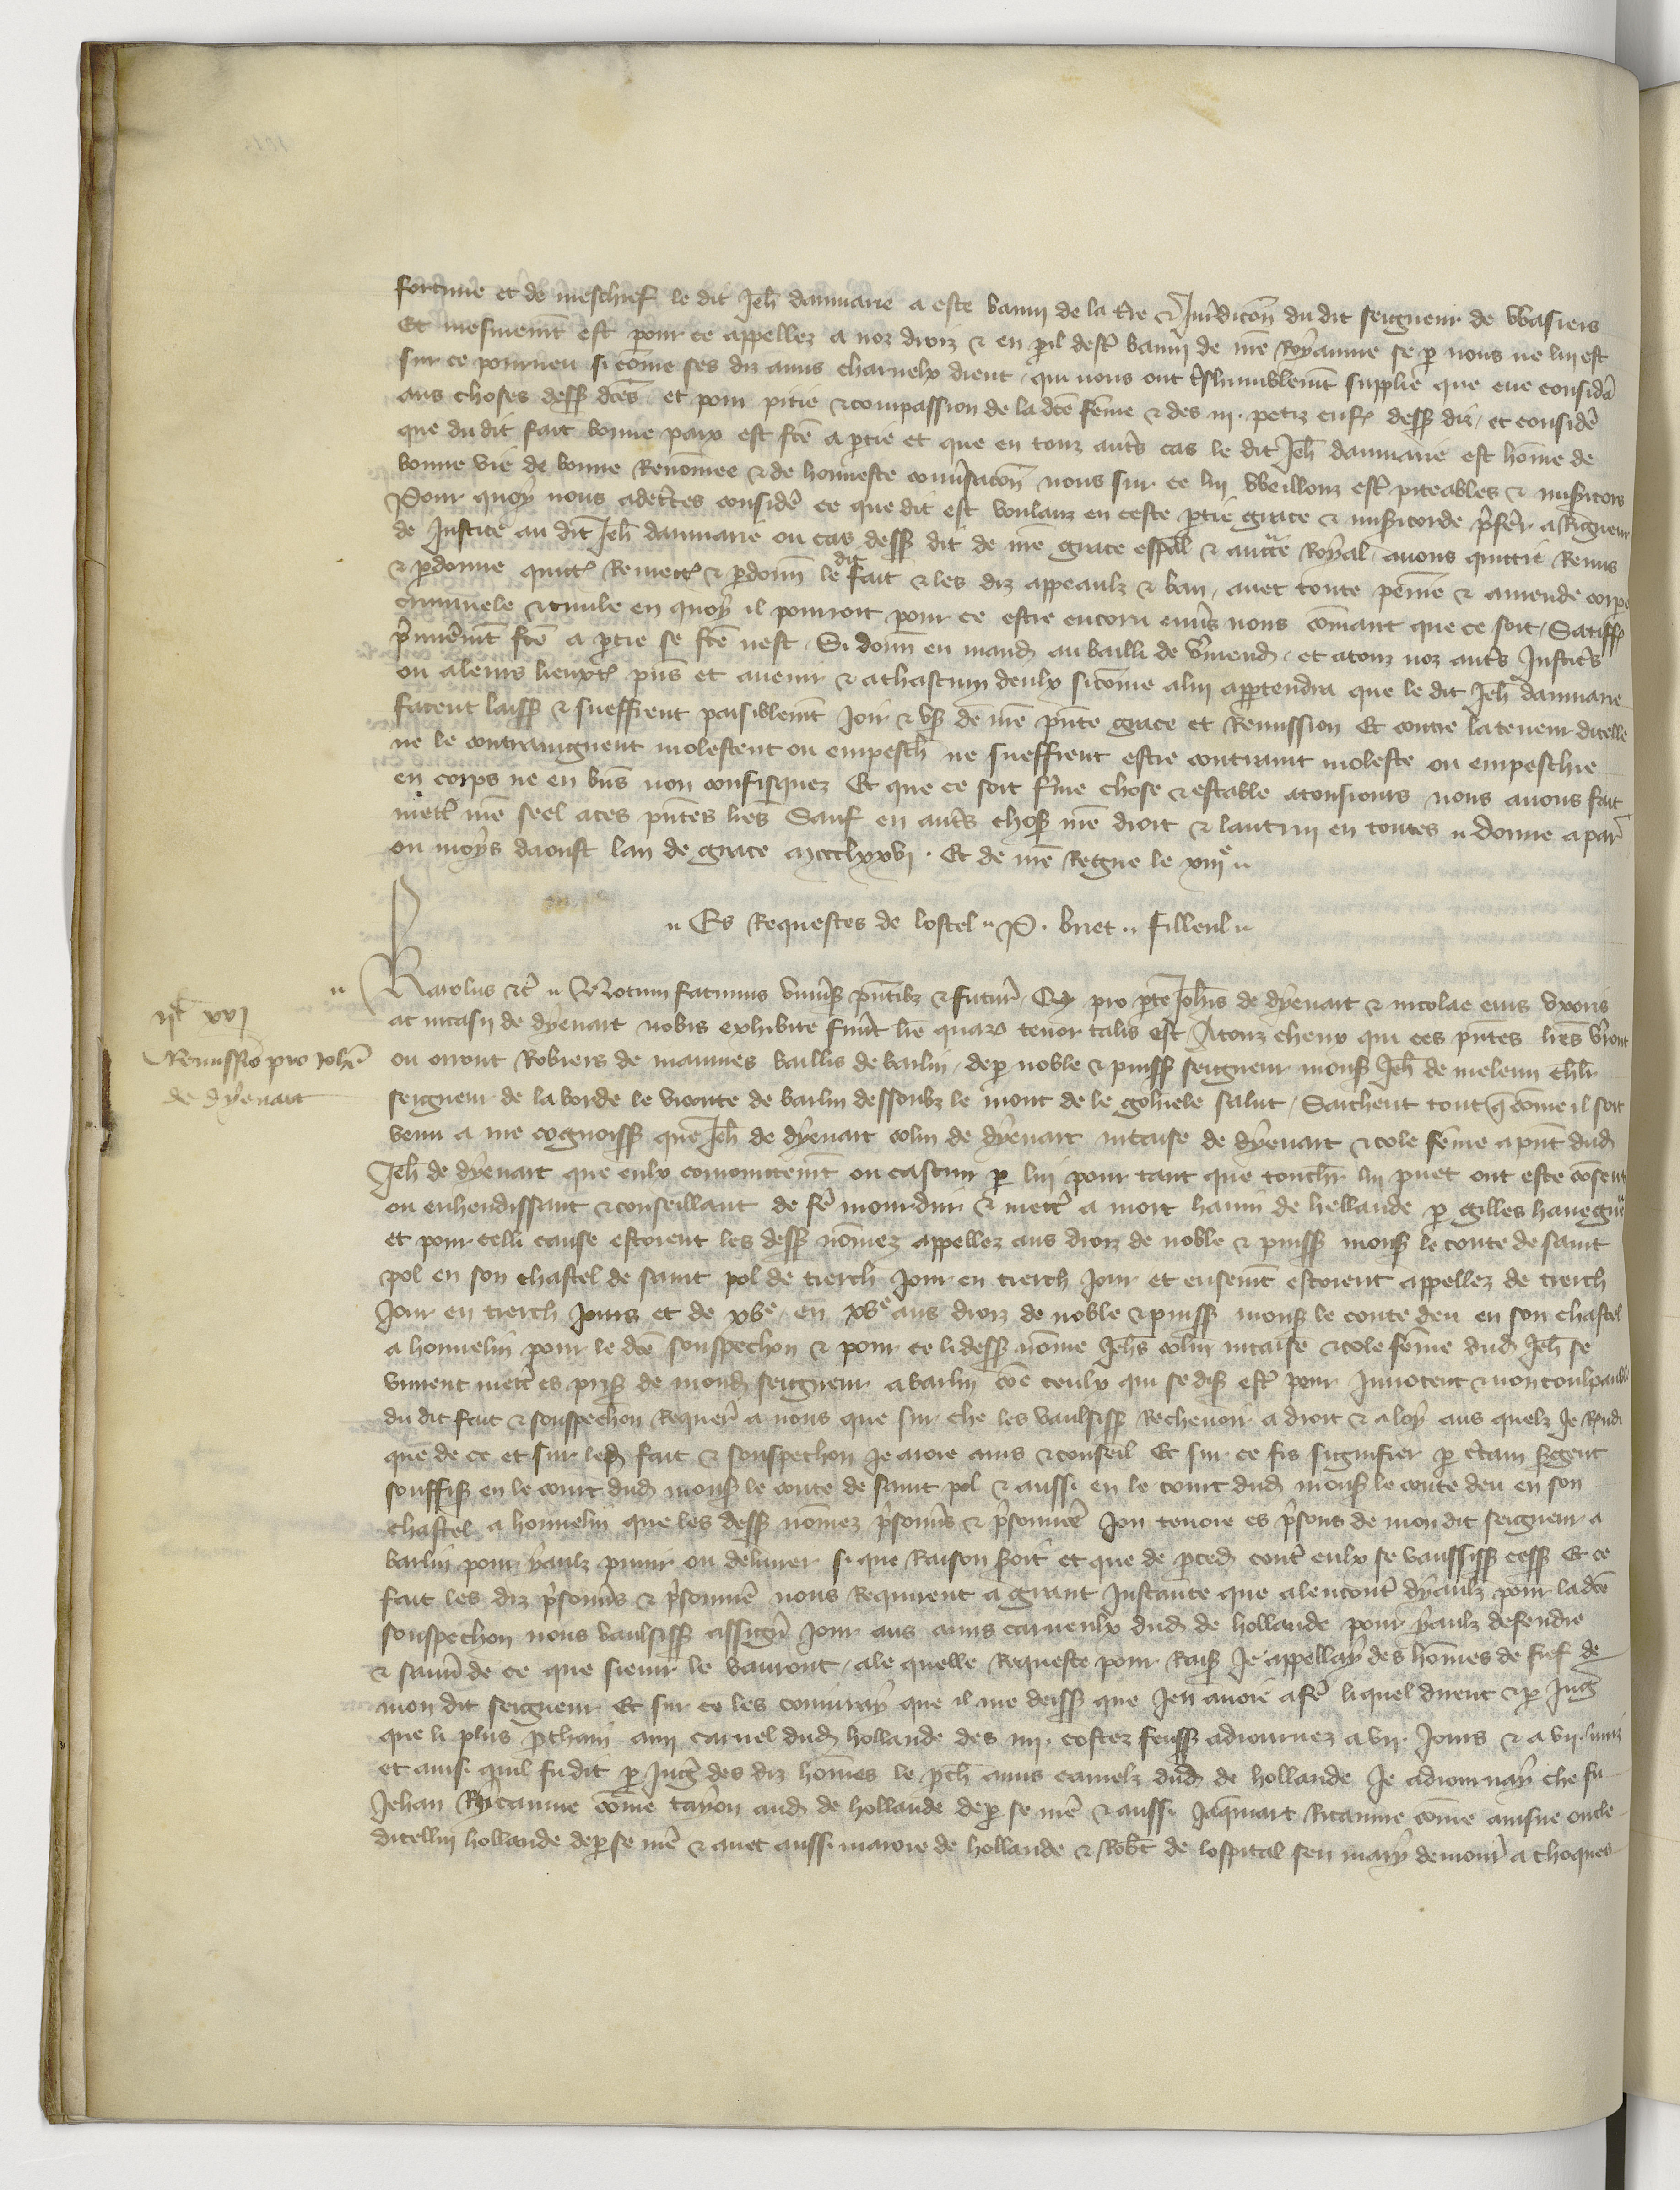 fortune et de meschief le dit Jeh̄ dannarie a este banny de la t̄re & Juridicōn du dit seigneur de Wasiers
Et mesmem̄t est pour ce appellez a noz droiz & en p̱il dest̄ banny de n̄re Royaume se p̱ nous ne luy est
sur ce pourveu si cōme ses diz amis charnelx dient qui nous ont t̄shumblem̄t supplie que eue considā
aus choses dess dc̄es et pour pitie & compassion de la dc̄e fēme & des iij petiz enf dess diz et considē
que du dit fait bonne paix est fc̄e a p̱tie et que en touz aut̄s cas le dit Jeh̄ dannarie est hōme de
bonne vie de bonne Renōmee & de honneste conv̄sacōn nous sur ce luy Weillonz est̄ piteables & mis̄icors
Pour quoy nous adec̄tes considē ce que dit est voulanz en ceste p̱tie grace & mis̄icorde p̄fer̄ a Rigueur
de Justice au dit Jeh̄ dannarie ou cas dess dit de n̄re grace esp̄al & auct̄e Royal avons quictie Remis
& p̱donne quitt Remett & p̱donn̄ le dit fait & les diz appeaulx & ban avec toute peine & amende corpe
criminele & civile en quoy il pourroit pour ce estre encoru env̄s nous cōmant que ce soit Satiff
p̄mierem̄t fc̄e a p̱tie se fc̄e nest Si donn̄ en mand au bailli de v̄mend et a touz noz aut̄s Justic̄s
ou a leurs lieuxt p̄ns et avenir & a chascun deulx si cōme a luy app̱tendra que le dit Jeh̄ dannarie
facent laiss & sueffrent paisiblem̄t Joir & us̄ de n̄re p̄nte grace et Remission Et contre la teneur dicelle
ne le contraingnent molestent ou empesch̄ ne sueffrent estre contraint moleste ou empeschie
en corps ne en biēs non confisquez Et que ce soit f̄me chose & estable a tousjours nous avons fait
mett̄ n̄re seel a ces p̄ntes l̄res Sauf en aut̄s chos̄ n̄re droit & lautruy en toutes donne a par̄
ou moys daoust lan de grace mccclxxvi Et de n̄re Regne le xiije
Es Requestes de lostel P. briet Filleul
Karolus &c̄ Notum facimus univ̄s p̄ntibz & futur̄ Qḏ pro p̱te Joh̄is de dyenart & nicolae eius uxoris
ac incasij de dyenart nobis exhibite fuer̄t l̄re quaꝝ tenor talis est A touz cheux qui ces p̄ntes l̄res v̄ront
ou orront Robiers de maunes baillis de barlin de p̱ noble & puiss seigneur mons̄ Jeh̄ de meleun ch̄lr
seigneur de la borde le viconte de barlin dessoubz le mont de le gohiele salut Sachent tout q̄ cōme il soit
venu a me cognoiss que Jeh̄ de dyenart colin de dyenart incaise de dyenart & cole fēme a p̄nt dud
Jeh̄ de dyenart que eulx cōiointem̄t ou cascun p̱ lui pour tant que touch̄r lui puet ont este cōsent
ou enhendissant & conseillant de fē mourdrir & mett̄ a mort hanin de hellande p̱ gilles haveg
et pour celli cause estoient les dess nōmez appellez aus droiz de noble & puiss mons̄ le conte de saint
pol en son chastel de saint pol de tierch Jour en tierch Jour et ensem̄t estoient appellez de tierch
Jour en tierch Jours et de xve en xve aus droiz de noble & puiss mons̄ le conte deu en son chastel
a houvelin pour le dc̄e souspechon & pour ce li dess nōme Jeh̄s colin incaise & cole fēme dud Jeh̄ se
vinrent mett̄ es pris̄ de mond seigneur a barlin cōe ceulx qui se dis̄ est̄ pour Innocent & non coulpauble
du dit fait & souspechon Requer̄ a nous que sur che les vaulsiss Rechevoir a droit & a loy aus quelz Je Rendi
que de ce et sur led fait & souspechon Je aroie avis & conseil Et sur ce fis signifier p̱ c̄tain s̄gent
souffis̄ en le court dud mons̄ le conte de saint pol & aussi en le court dud mons̄ le conte deu en son
chastel a houvelin que les dess nōmez p̄sonn̄s & p̄sonniē Jou tenoie es p̄sons de mon dit seigneur a
barlin pour yaulz punir ou delivrer si que Raison s̄oit et que de p̱ced cont̄ eulx se vaussiss cess Et ce
fait les diz p̄sonn̄s & p̄sonniē nous Requirent a grant Instance que alencont̄ dyaulz pour la dc̄e
souspechon nous vaulsiss assign̄ Jour aus amis carneulx dud de hollande pour yaulz defendre
& savoir de ce que sieuir le vauront a le quelle Requeste pour Rais̄ Je appellay des hōmes de fief de
mon dit seigneur Et sur ce les conjuray que il me deiss que Jen avoie a fē li quel dirent & p̱ Juḡ
que li plus p̱chain amy carnel dud hollande des iiij costez feuss adiournez a vij Jours & a vij nuiz
et ainsi quil fu dit p̱ Juḡ des diz hōmes le p̱ch̄ amis carnelz dud de hollande Je adiournay che fu
Jehan Ricamme cōme tayon aud de hollande de p̱ se mē & aussi Jaq̄mart Ricamme cōme ainsne oncle
dicellui hollande de p̱ se mē & avec aussi maroie de hollande & Rob̄t de lospital sen mary demour̄ a choques
xvj
Remissio pro Joh̄e
de dyenart